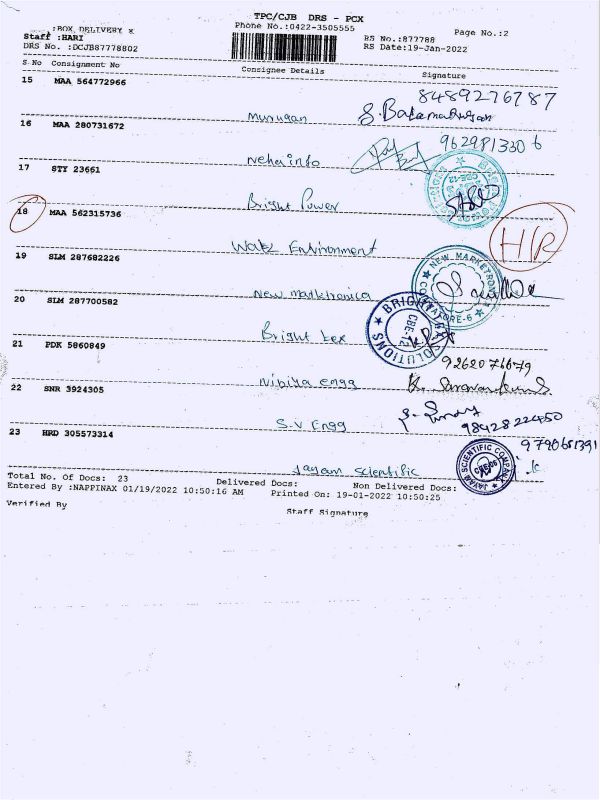 TPC/CJB DRS - PCX
:BOX DELIVERY K
Phone No.:0422-3505555
Page No.:2
Staff :HARI
RS No.:877788
DRS No. :DCJB87778802
RS Date:19-Jan-2022
S No Consignment No Consignee Details Signature
15 MAA 564772966
8489276787
Murugan
S. Balamurugan
16 MAA 280731672
9629813306
Neha info
17 STY 23661
Bright Power
18 MAA 562315736
H/R
Water Environment
19 SLM 287682226
NEW MARKETRONI
New marketronica
COIMBATORE-6
20 SLM 287700582
BRIGHT
SOLUTIONS
CBE-12
Bright tex
21 PDK 5860849
9262076679
Nibiya engg
22 SNR 3924305
9842822450
S.V Engg
23 HRD 305573314
9790651391
Jayam Scientific
JAYAM SCIENTIFIC COMPANY
Total No. Of Docs: 23 Delivered Docs: Non Delivered Docs:
Entered By :NAPPINAX 01/19/2022 10:50:16 AM Printed On: 19-01-2022 10:50:25
Verified By Staff Signature